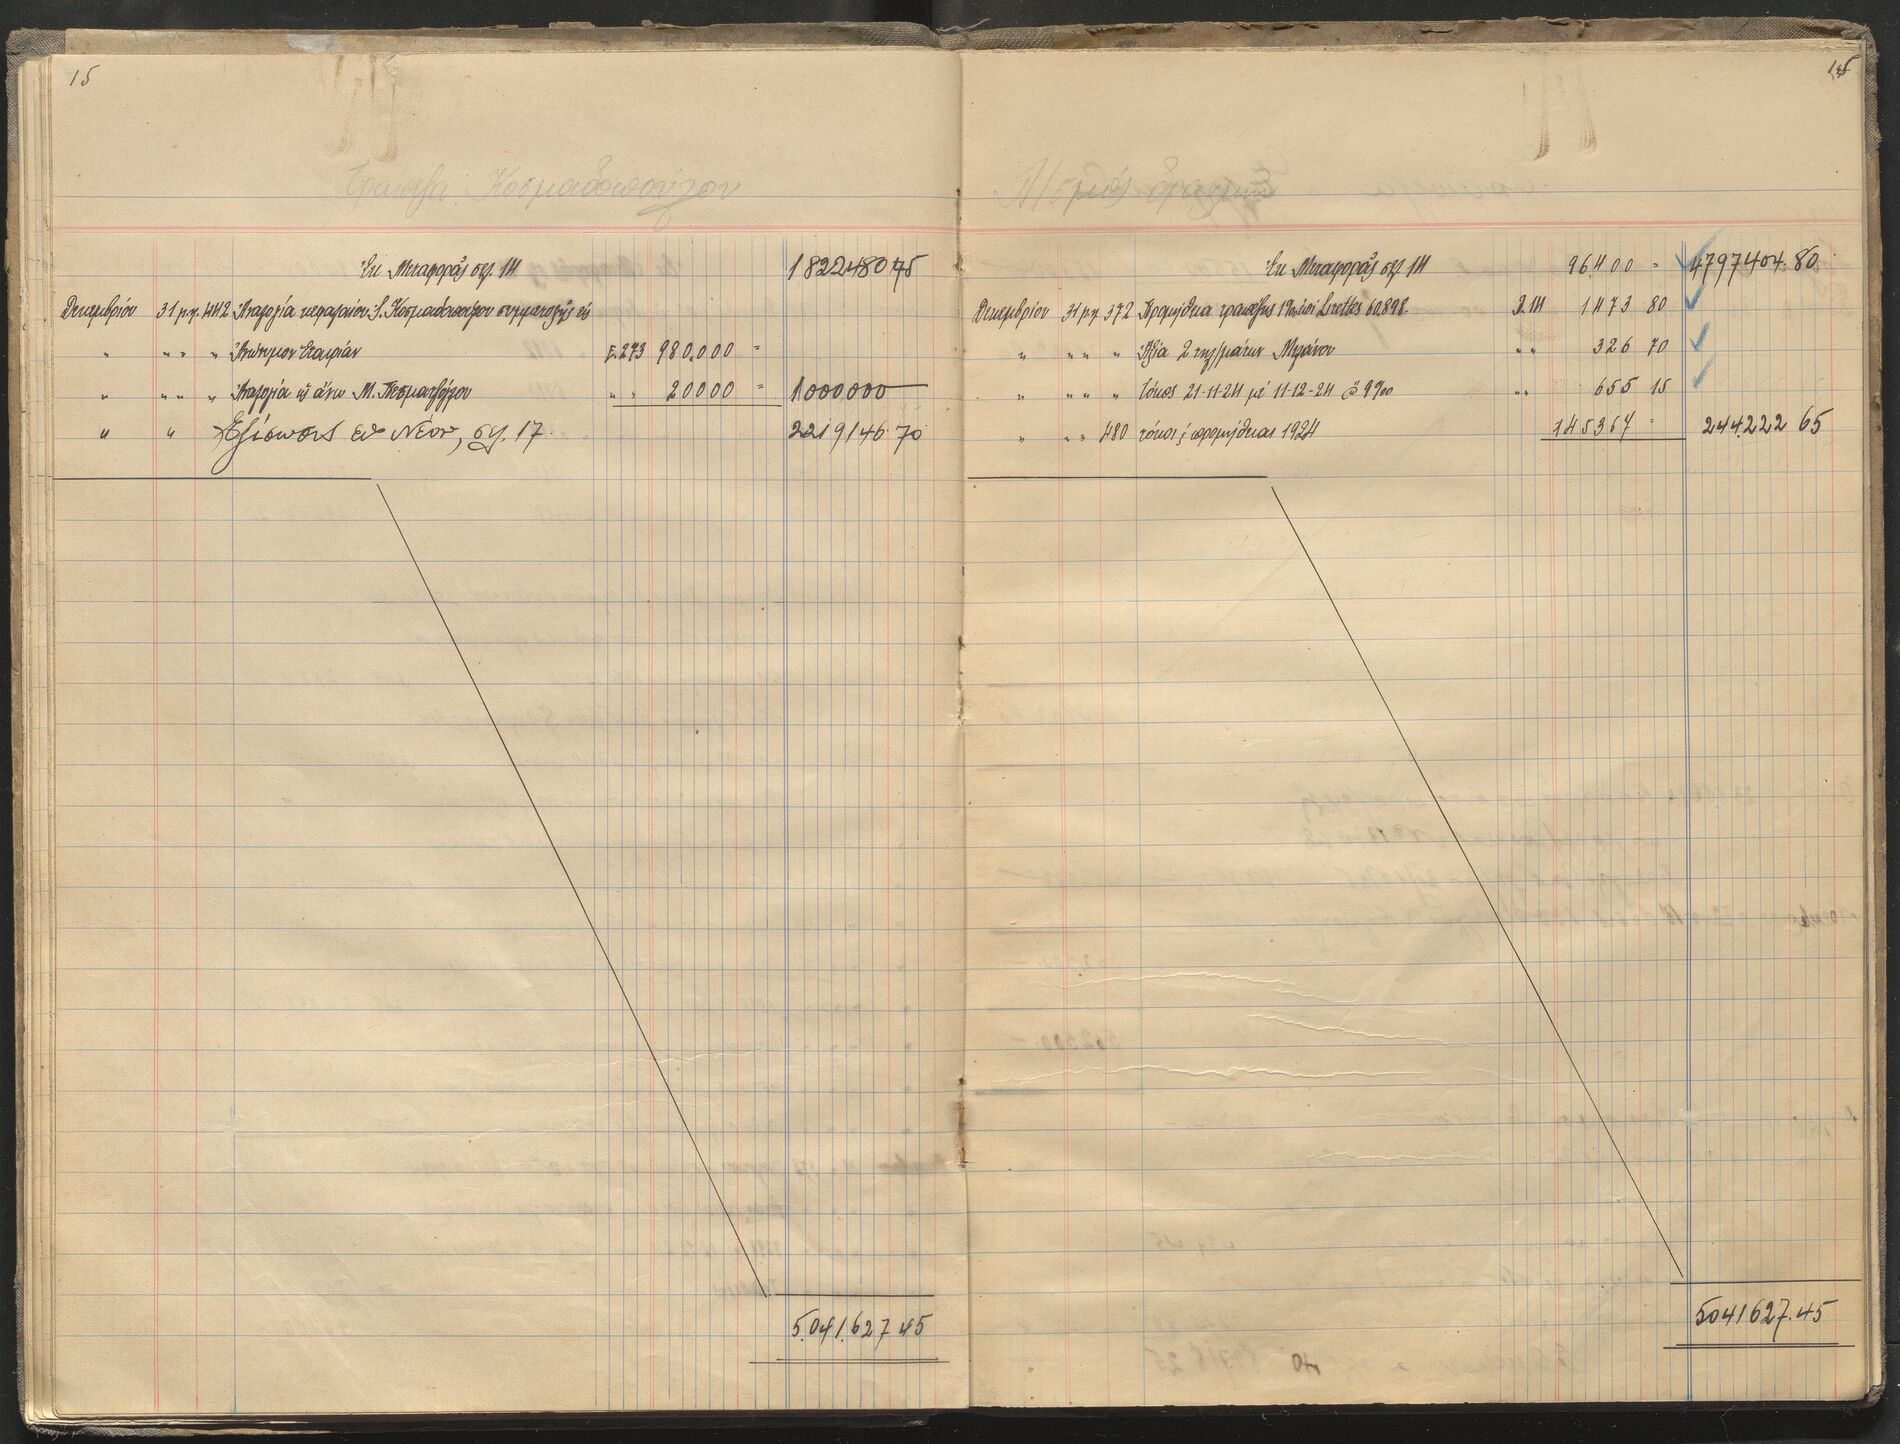 15
Τράπεζα Κοσμαδοπούλου
Ἐκ Μεταφορᾶς σελ. 14 1822480 75
Δεκεμβρίου 31 μ.γ. 442 Ἀναλογία κεφαλαίου Γ. Κοσμαδοπούλου συμμετοχῆς εἰς
" " " " Ἀνώνυμον Ἑταιρίαν Γ. 273 980.000 =
" " " " Ἀναλογία ὡς ἄνω Μ. " " 20000 = 1000000
" " Ἐξίσωσις εἰς Νέον, σελ. 17. 2219146 70
5.041.627 45
15
Λ/σμὸς δραχμῶν
Ἐκ Μεταφορᾶς σελ. 14 96400 = 4797404.80
Δεκεμβρίου 31 μ.γ. 372 Προμήθεια τραπέζης 60.898. Σ. 14 1473 80
" " " " Ἀξία 2 τηλ/μάτων Μιλάνου " " 326 70
" " " " Τόκος 21-11-24 μέ 11-12-24 " " 655 15
" " " 480 τόκοι & προμήθειαι 1924 145367 = 244.222 65
5041627.45